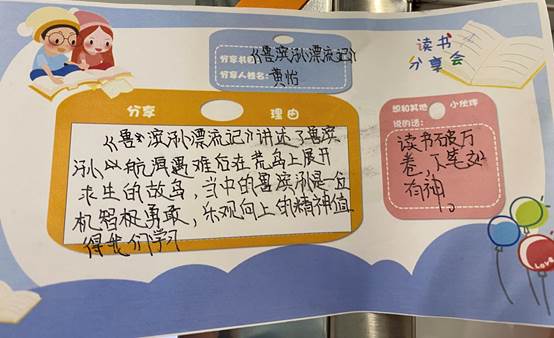 读书
分享会
分享书目:《鲁滨孙漂流记》
分享人姓名:黄怡
分享 理由
《鲁滨孙漂流记》讲述了鲁滨
孙以航海遇难后在荒岛上展开
求生的故鸟,当中的鲁滨孙是一位
机智极勇敢,乐观向上的精神值
得我们学习
想和其他小伙伴
说的话:
读书破万
卷,下笔如
有神。
LOVE